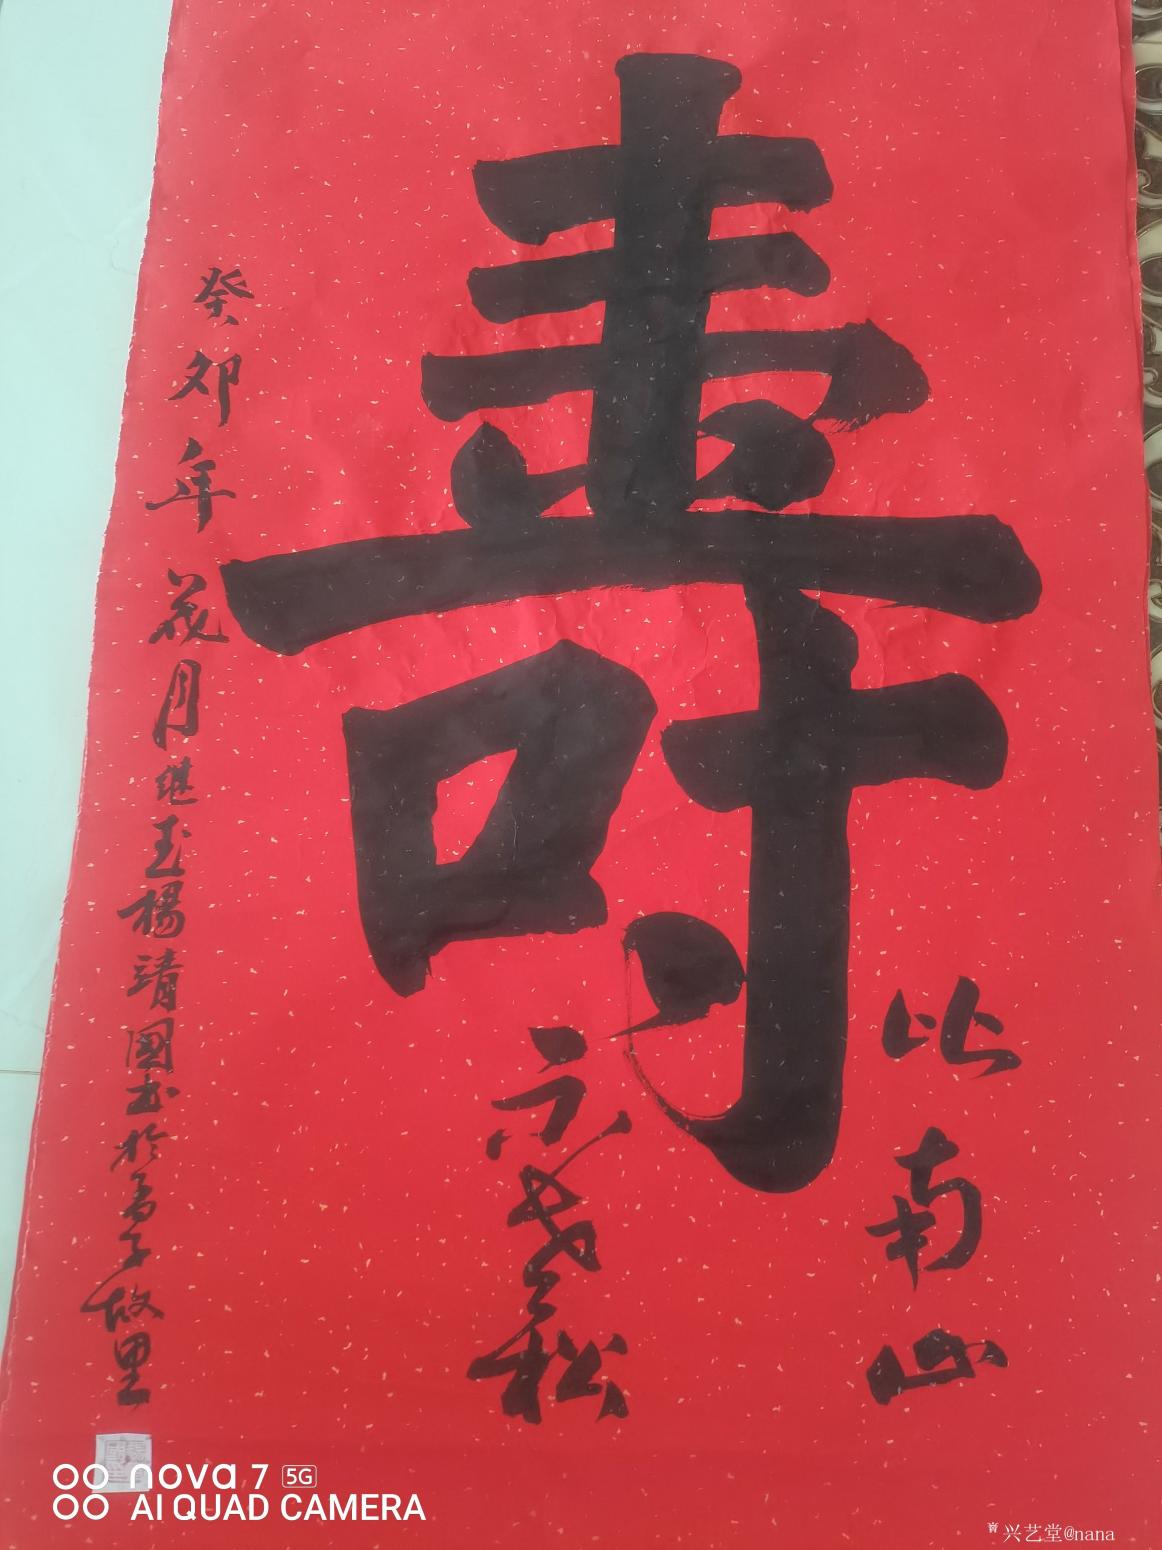 壽
比南山
不老松
癸卯年花月继玉楊靖國书於孟子故里
nova 7 5G
AI QUAD CAMERA
兴艺堂@nana